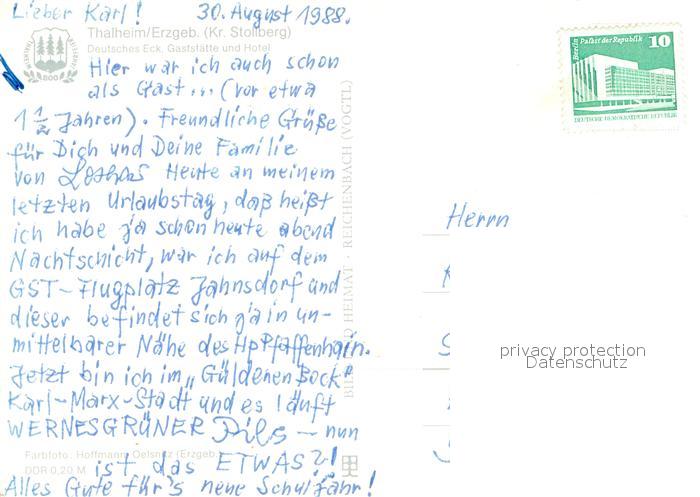 Lieber Karl! 30. August 1988.
Thalheim/Erzgeb. (Kr. Stollberg)
Deutsches Eck, Gaststätte und Hotel
Hier war ich auch schon
als Gast... (vor etwa
1 1/2 Jahren). Freundliche Grüße
für Dich und Deine Familie
von Lothar Heute an meinem
letzten Urlaubstag, daß heißt
ich habe ja schon heute abend
Nachtschicht, war ich auf dem
GST-Flugplatz Jahnsdorf und
dieser befindet sich ja in un-
mittelbarer Nähe des Hp Pfaffenhain.
Jetzt bin ich im „Güldenen Bock"
Karl-Marx-Stadt und es läuft
WERNESGRÜNER Pils – nun
Farbfoto: Hoffmann, Oelsnitz (Erzgeb.)
ist das ETWAS?!
DDR 0,20 M
Alles Gute für's neue Schuljahr!
BILD HEIMAT · REICHENBACH (VOGTL)
Berlin Palast der Republik 10
DEUTSCHE DEMOKRATISCHE REPUBLIK
Herrn
privacy protection
Datenschutz